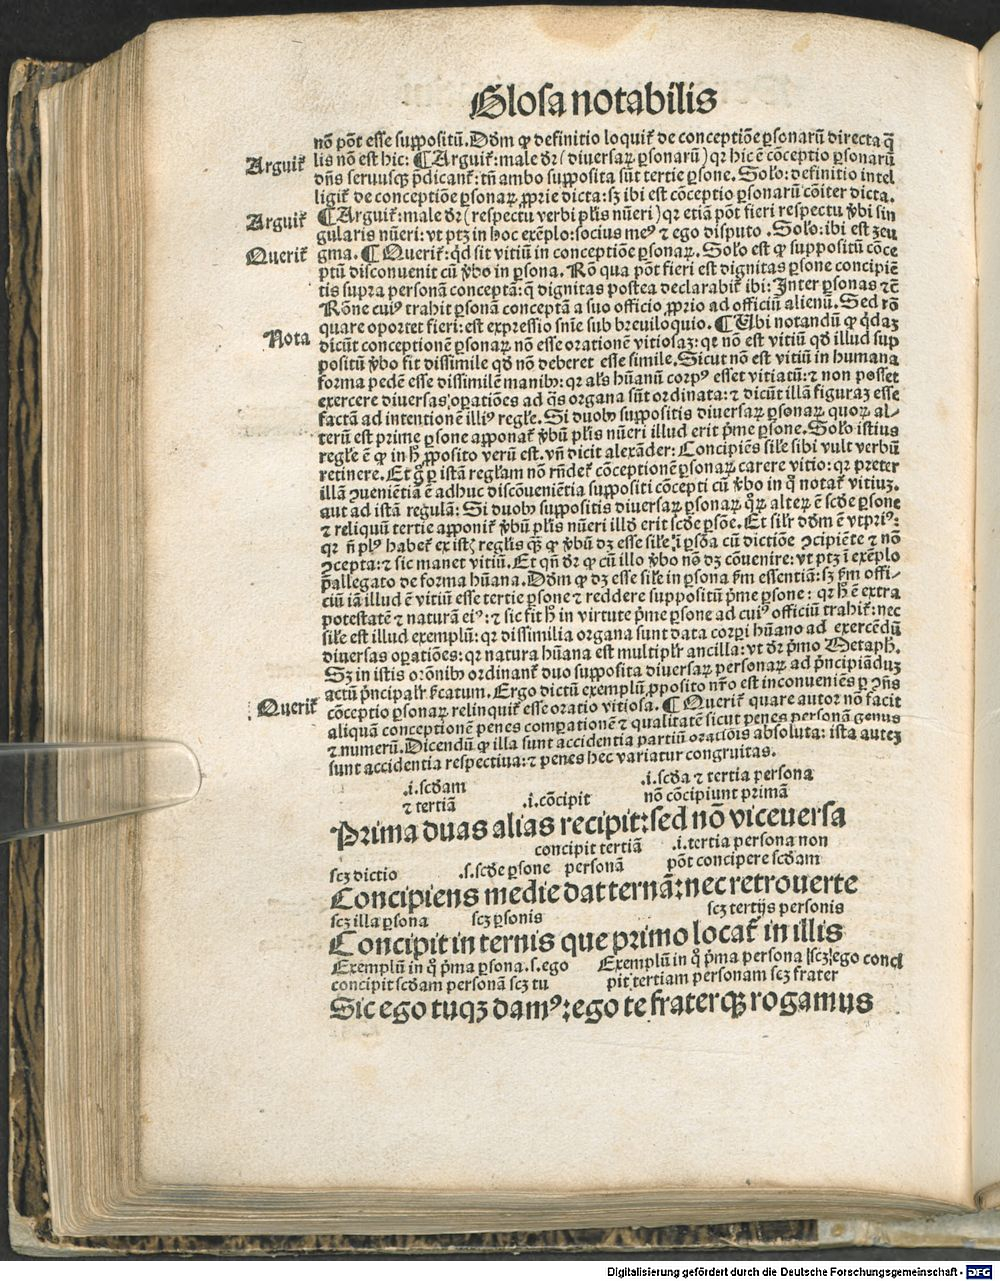 Glosa notabilis
nõ põt esse suppositũ. Dõm ꝙ definitio loquit᷑ de conceptiõe ꝑsonarũ directa q̃
Arguit᷑
lis nõ est hic: ¶ Arguit᷑: male dr̃ (diuersaꝝ ꝑsonarũ) qꝛ hic ẽ cõceptio ꝑsonarũ
dñs seruusqꝫ p̃dicant᷑: tñ ambo supposita sũt tertie ꝑsone. Solõ: definitio intel
ligit᷑ de conceptiõe ꝑsonaꝝ ꝓprie dicta: sꝫ ibi est cõceptio ꝑsonarũ cõiter dicta.
Arguit᷑
¶ Arguit᷑: male dr̃ (respectu verbi pl̃is nũeri) qꝛ etiã põt fieri respectu v̾bi sin
gularis nũeri: vt ptꝫ in hoc exẽplo: socius meꝰ ⁊ ego disputo. Solõ: ibi est zeu
Querit᷑
gma. ¶ Querit᷑: qd̾ sit vitiũ in conceptiõe ꝑsonaꝝ. Solõ est ꝙ suppositũ cõce
ptũ disconuenit cũ v̾bo in ꝑsona. Rõ qua põt fieri est dignitas ꝑsone concipiẽ
tis supra personã conceptã: q̃ dignitas postea declarabit᷑ ibi: Inter ꝑsonas ⁊c̃
Rõne cuiꝰ trahit ꝑsonã conceptã a suo officio ꝓprio ad officiũ alienũ. Sed rõ
quare oportet fieri: est expressio sñie sub breuiloquio. ¶ Ubi notandũ ꝙ qd̾aꝫ
Nota
dicũt conceptionẽ ꝑsonaꝝ nõ esse orationẽ vitiosaꝫ: qꝛ nõ est vitiũ qd̾ illud sup
positũ v̾bo fit dissimile qd̾ nõ deberet esse simile. Sicut nõ est vitiũ in humana
forma pedẽ esse dissimilẽ manibꝰ: qꝛ al̃s hũanũ corpꝰ esset vitiatũ: ⁊ non posset
exercere diuersas opatiões ad q̃s organa sũt ordinata: ⁊ dicũt illã figuraꝫ esse
factã ad intentionẽ illiꝰ regl̃e. Si duobꝰ suppositis diuersaꝝ ꝑsonaꝝ quoꝝ al-
terũ est prime ꝑsone apponat᷑ v̾bũ pl̃is nũeri illud erit p̃me ꝑsone. Solõ istius
regl̃e ẽ ꝙ in h̾ ꝓposito verũ est. vñ dicit alexãder: Concipiẽs sil̃e sibi vult verbũ
retinere. Et g̾ ꝑ istã regl̃am nõ rñdet᷑ cõceptionẽ ꝑsonaꝝ carere vitio: qꝛ preter
illã ꝯueniẽtiã ẽ adhuc discõueniẽtia suppositi cõcepti cũ v̾bo in q̊ notat᷑ vitiuꝫ.
aut ad istã regulã: Si duobꝰ suppositis diuersaꝝ ꝑsonaꝝ q̊ꝝ alteꝝ ẽ scd̾e ꝑsone
⁊ reliquũ tertie apponit᷑ v̾bũ pl̃is nũeri illd̾ erit scd̾e ꝑsõe. Et sil̃r dõm ẽ vt priꝰ:
qꝛ ñ plꝰ habet᷑ ex istꝭ regl̃is qꝫ̃ ꝙ v̾bũ dꝫ esse sil̃e ĩ ꝑsõa cũ dictiõe ꝯcipiẽte ⁊ nõ
ꝯcepta: ⁊ sic manet vitiũ. Et qñ dr̃ ꝙ cũ illo v̾bo nõ dꝫ cõuenire: vt ptꝫ ĩ exẽplo
p̃allegato de forma hũana. Dõm ꝙ dꝫ esse sil̃e in ꝑsona ẜm essentiã: sꝫ ẜm offi-
ciũ iã illud ẽ vitiũ esse tertie ꝑsone ⁊ reddere suppositũ p̃me ꝑsone: qꝛ h̾ ẽ extra
potestatẽ ⁊ naturã eiꝰ: ⁊ sic fit h̾ in virtute p̃me ꝑsone ad cuiꝰ officiũ trahit᷑: nec
sil̃e est illud exemplũ: qꝛ dissimilia organa sunt data corpi hũano ad exercẽdũ
diuersas opatiões: qꝛ natura hũana est multipl̃r ancilla: vt dr̃ p̃mo Metaph̾.
Sꝫ in istis orõnibꝰ ordinant᷑ duo supposita diuersaꝝ personaꝝ ad p̃ncipiãduꝫ
actũ p̃ncipal̃r ẜcatum. Ergo dictũ exemplũ ꝓposito nr̃o est inconueniẽs ꝑ ꝯñs
Querit᷑
cõceptio ꝑsonaꝝ relinquit᷑ esse oratio vitiosa. ¶ Querit᷑ quare autor nõ facit
aliquã conceptionẽ penes compationẽ ⁊ qualitatẽ sicut penes personã genus
⁊ numerũ. Dicendũ ꝙ illa sunt accidentia partiũ orationis absoluta: ista auteꝫ
sunt accidentia respectiua: ⁊ penes hec variatur congruitas.
.i. scd̾am .i. scd̾a ⁊ tertia persona
⁊ tertiã .i. cõcipit nõ cõcipiunt primã
Prima duas alias recipit: sed nõ viceuersa
concipit tertiã .i. tertia persona non
scꝫ dictio .s. scd̾e ꝑsone personã põt concipere scd̾am
Concipiens medie dat ternã: nec retrouerte
scꝫ illa ꝑsona scꝫ ꝑsonis scꝫ tertijs personis
Concipit in ternis que primo locat᷑ in illis
Exemplũ in q̊ p̃ma ꝑsona .s. ego Exemplũ in q̊ p̃ma persona scꝫ ego conci
concipit scd̾am personã scꝫ tu pit tertiam personam scꝫ frater
Sic ego tuqꝫ damꝰ: ego te fraterqꝫ rogamus
Digitalisierung gefördert durch die Deutsche Forschungsgemeinschaft - DFG